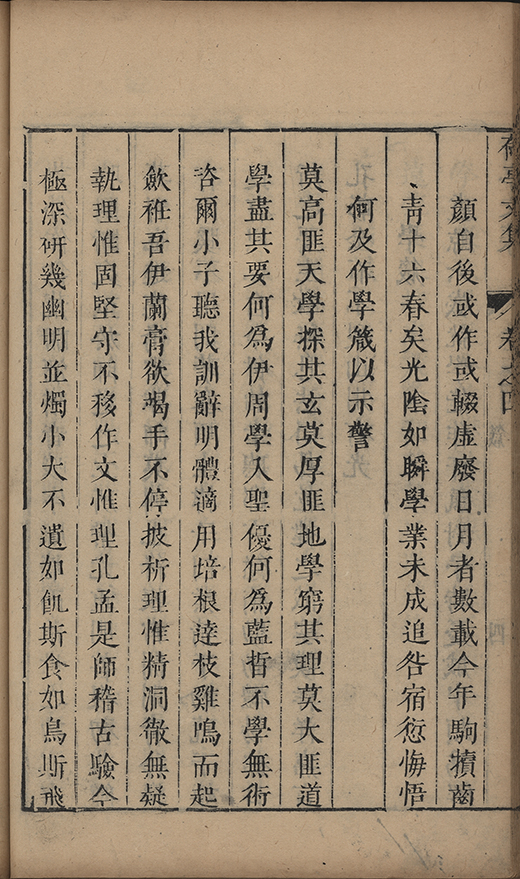 卷之四
顏自後或作或輟虛廢日月者數載今年駒犢齒
青十六春矣光陰如瞬學業未成追咎宿愆悔悟
何及作學箴以示警
莫高匪天學探其玄莫厚匪地學窮其理莫大匪道
學盡其要何為伊周學入聖優何為藍哲不學無術
咨爾小子聽我訓辭明體適用培根達枝雞鳴而起
斂袵吾伊蘭膏欲竭手不停披析理惟精洞徹無疑
執理惟固堅守不移作文惟理孔孟是師稽古驗今
極深研幾幽明並燭小大不遺如飢斯食如鳥斯飛